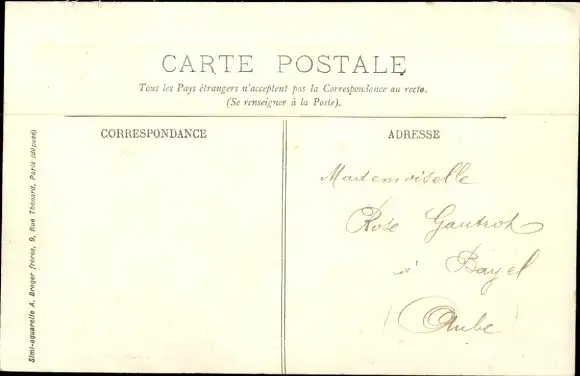 CARTE POSTALE
Tous les Pays étrangers n'acceptent pas la Correspondance au recto.
(Se renseigner à la Poste).
CORRESPONDANCE
ADRESSE
Mademoiselle
Rose Gautrot
à Bayel
(Aube)
Simi-aquarelle A. Breger frères, 9, Rue Thénard, Paris (déposé)